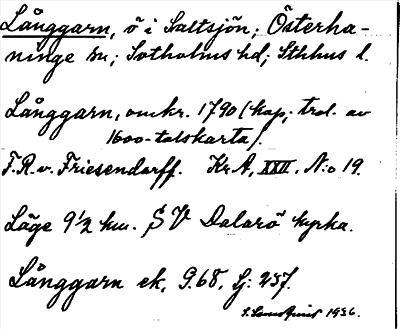 Långgarn, ö i Saltsjön; Österha-
ninge sn; Sotholms hd; Sthlms l.
Långgarn, omkr. 1790 (kop; trol. av
1600-talskarta).
F.R. v. Friesendorff. Kr A, XXII, N:o 19.
Läge 9 1/2 km. SV Dalarö kyrka.
Långgarn ek, 9.68, Lj: 257.
1936.